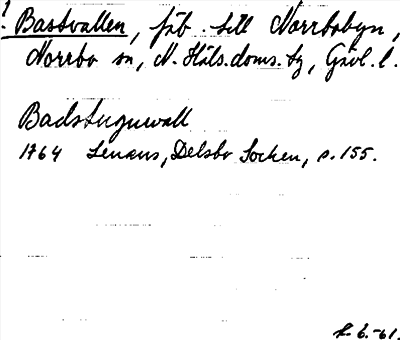 ! Bastvallen, fäb. till Norrbobyn,
Norrbo sn, N. Häls. doms. tg, Gävl. l.
Badstuguwall
1764 Lenæus, Delsbo Socken, s. 155.
6.-61.